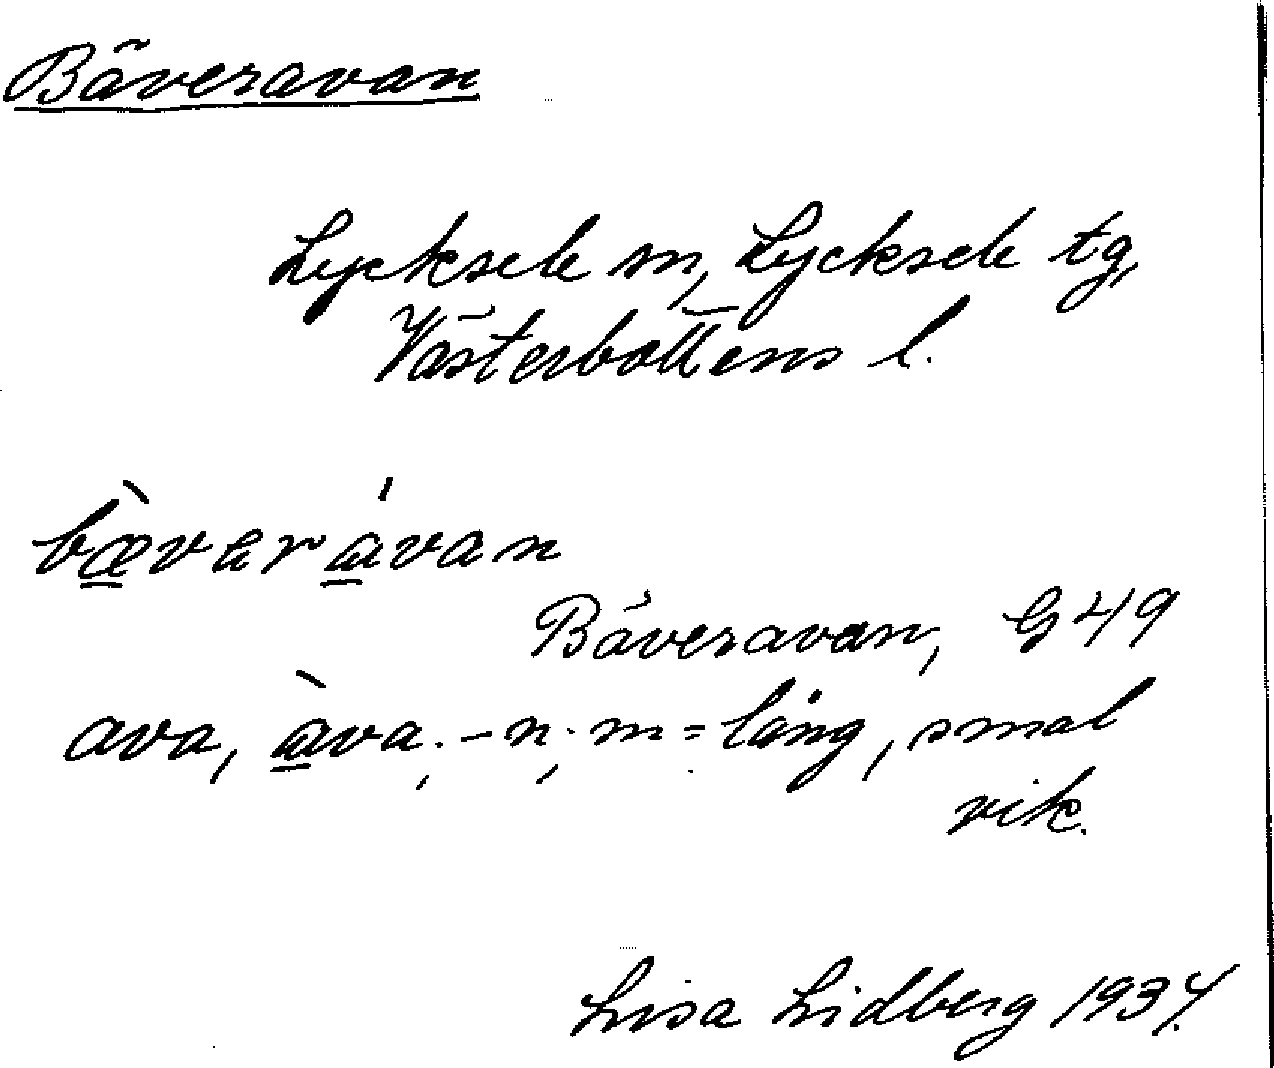 Bäveravan
Lycksele sn, Lycksele tg,
Västerbottens l.
bæ̀vərávan
Bäveravan, G 49
ava, àva; -n; m = lång, smal
vik.
Lisa Lidberg 1937.